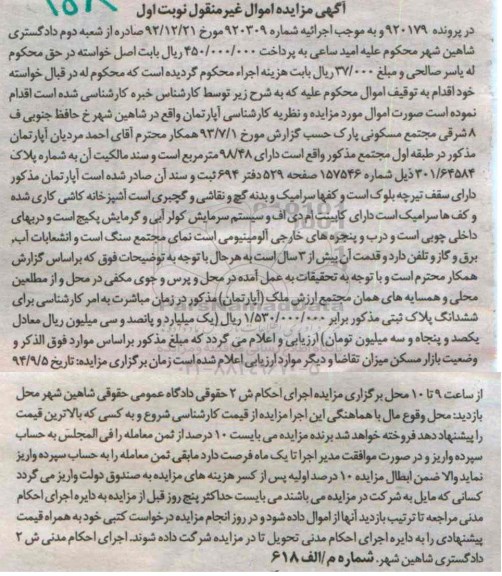 ۱۵۸
آگهی مزایده اموال غیر منقول نوبت اول
در پرونده ۹۲۰۱۷۹ و به موجب اجرائیه شماره ۹۲۰۳۰۹ مورخ ۹۲/۱۲/۲۱ صادره از شعبه دوم دادگستری
شاهین شهر محکوم علیه امید ساعی به پرداخت ۴۵۰/۰۰۰/۰۰۰ ریال بابت اصل خواسته در حق محکوم
له یاسر صالحی و مبلغ ۳۷/۰۰۰ ریال بابت هزینه اجراء محکوم گردیده است که محکوم له در قبال خواسته
خود اقدام به توقیف اموال محکوم علیه که به شرح زیر توسط کارشناس خبره کارشناسی شده است اقدام
نموده است صورت اموال مورد مزایده و نظریه کارشناسی آپارتمان واقع در شاهین شهر خ حافظ جنوبی ف
۸ شرقی مجتمع مسکونی پارک حسب گزارش مورخ ۹۳/۷/۱ همکار محترم آقای احمد مردیان آپارتمان
مذکور در طبقه اول مجتمع مذکور واقع است دارای ۹۸/۴۸ متر مربع است و سند مالکیت آن به شماره پلاک
۳۰۱/۶۴۵۸۴ ذیل شماره ۱۵۷۵۴۶ صفحه ۵۲۹ دفتر ۶۹۴ ثبت و سند آن صادر شده است آپارتمان مذکور
دارای سقف تیرچه بلوک است و کفها سرامیک و بدنه گچ و نقاشی و گچبری است آشپزخانه کاشی کاری شده
و کف ها سرامیک است دارای کابینت ام دی اف و سیستم سرمایش کولر آبی و گرمایش پکیج است و دربهای
داخلی چوبی است و درب و پنجره های خارجی آلومینیومی است نمای مجتمع سنگ است و انشعابات آب,
برق و گاز و تلفن دارد و قدمت آن بیش از ۳ سال است به هر حال با توجه به توضیحات فوق که براساس گزارش
همکار محترم است و با توجه به تحقیقات به عمل آمده در محل و پرس و جوی مکفی در محل و از مطلعین
محلی و همسایه های همان مجتمع ارزش ملک (آپارتمان) مذکور در زمان مباشرت به امر کارشناسی برای
ششدانگ پلاک ثبتی مذکور برابر ۱/۵۳۰/۰۰۰/۰۰۰ ریال (یک میلیارد و پانصد و سی میلیون ریال معادل
یکصد و پنجاه و سه میلیون تومان) ارزیابی و اعلام می گردد که مبلغ مذکور براساس موارد فوق الذکر و
وضعیت بازار مسکن میزان تقاضا و دیگر موارد ارزیابی اعلام شده است زمان برگزاری مزایده: تاریخ ۹۴/۹/۵
از ساعت ۹ تا ۱۰ محل برگزاری مزایده اجرای احکام ش ۲ حقوقی دادگاه عمومی حقوقی شاهین شهر محل
بازدید: محل وقوع مال با هماهنگی این اجرا مزایده از قیمت کارشناسی شروع و به کسی که بالاترین قیمت
را پیشنهاد دهد فروخته خواهد شد برنده مزایده می بایست ۱۰ درصد از ثمن معامله را فی المجلس به حساب
سپرده واریز و در صورت موافقت مدیر اجرا تا یک ماه فرصت دارد مابقی ثمن معامله را به حساب سپرده واریز
نماید والا ضمن ابطال مزایده ۱۰ درصد اولیه پس از کسر هزینه های مزایده به صندوق دولت واریز می گردد
کسانی که مایل به شرکت در مزایده می باشند می بایست حداکثر پنج روز قبل از مزایده به دایره اجرای احکام
مدنی مراجعه تا ترتیب بازدید آنها از اموال داده شود و در روز انجام مزایده درخواست کتبی خود به همراه قیمت
پیشنهادی را به دایره اجرای احکام مدنی تحویل تا در مزایده شرکت داده شوند. اجرای احکام مدنی ش ۲
دادگستری شاهین شهر. شماره م/الف ۶۱۸